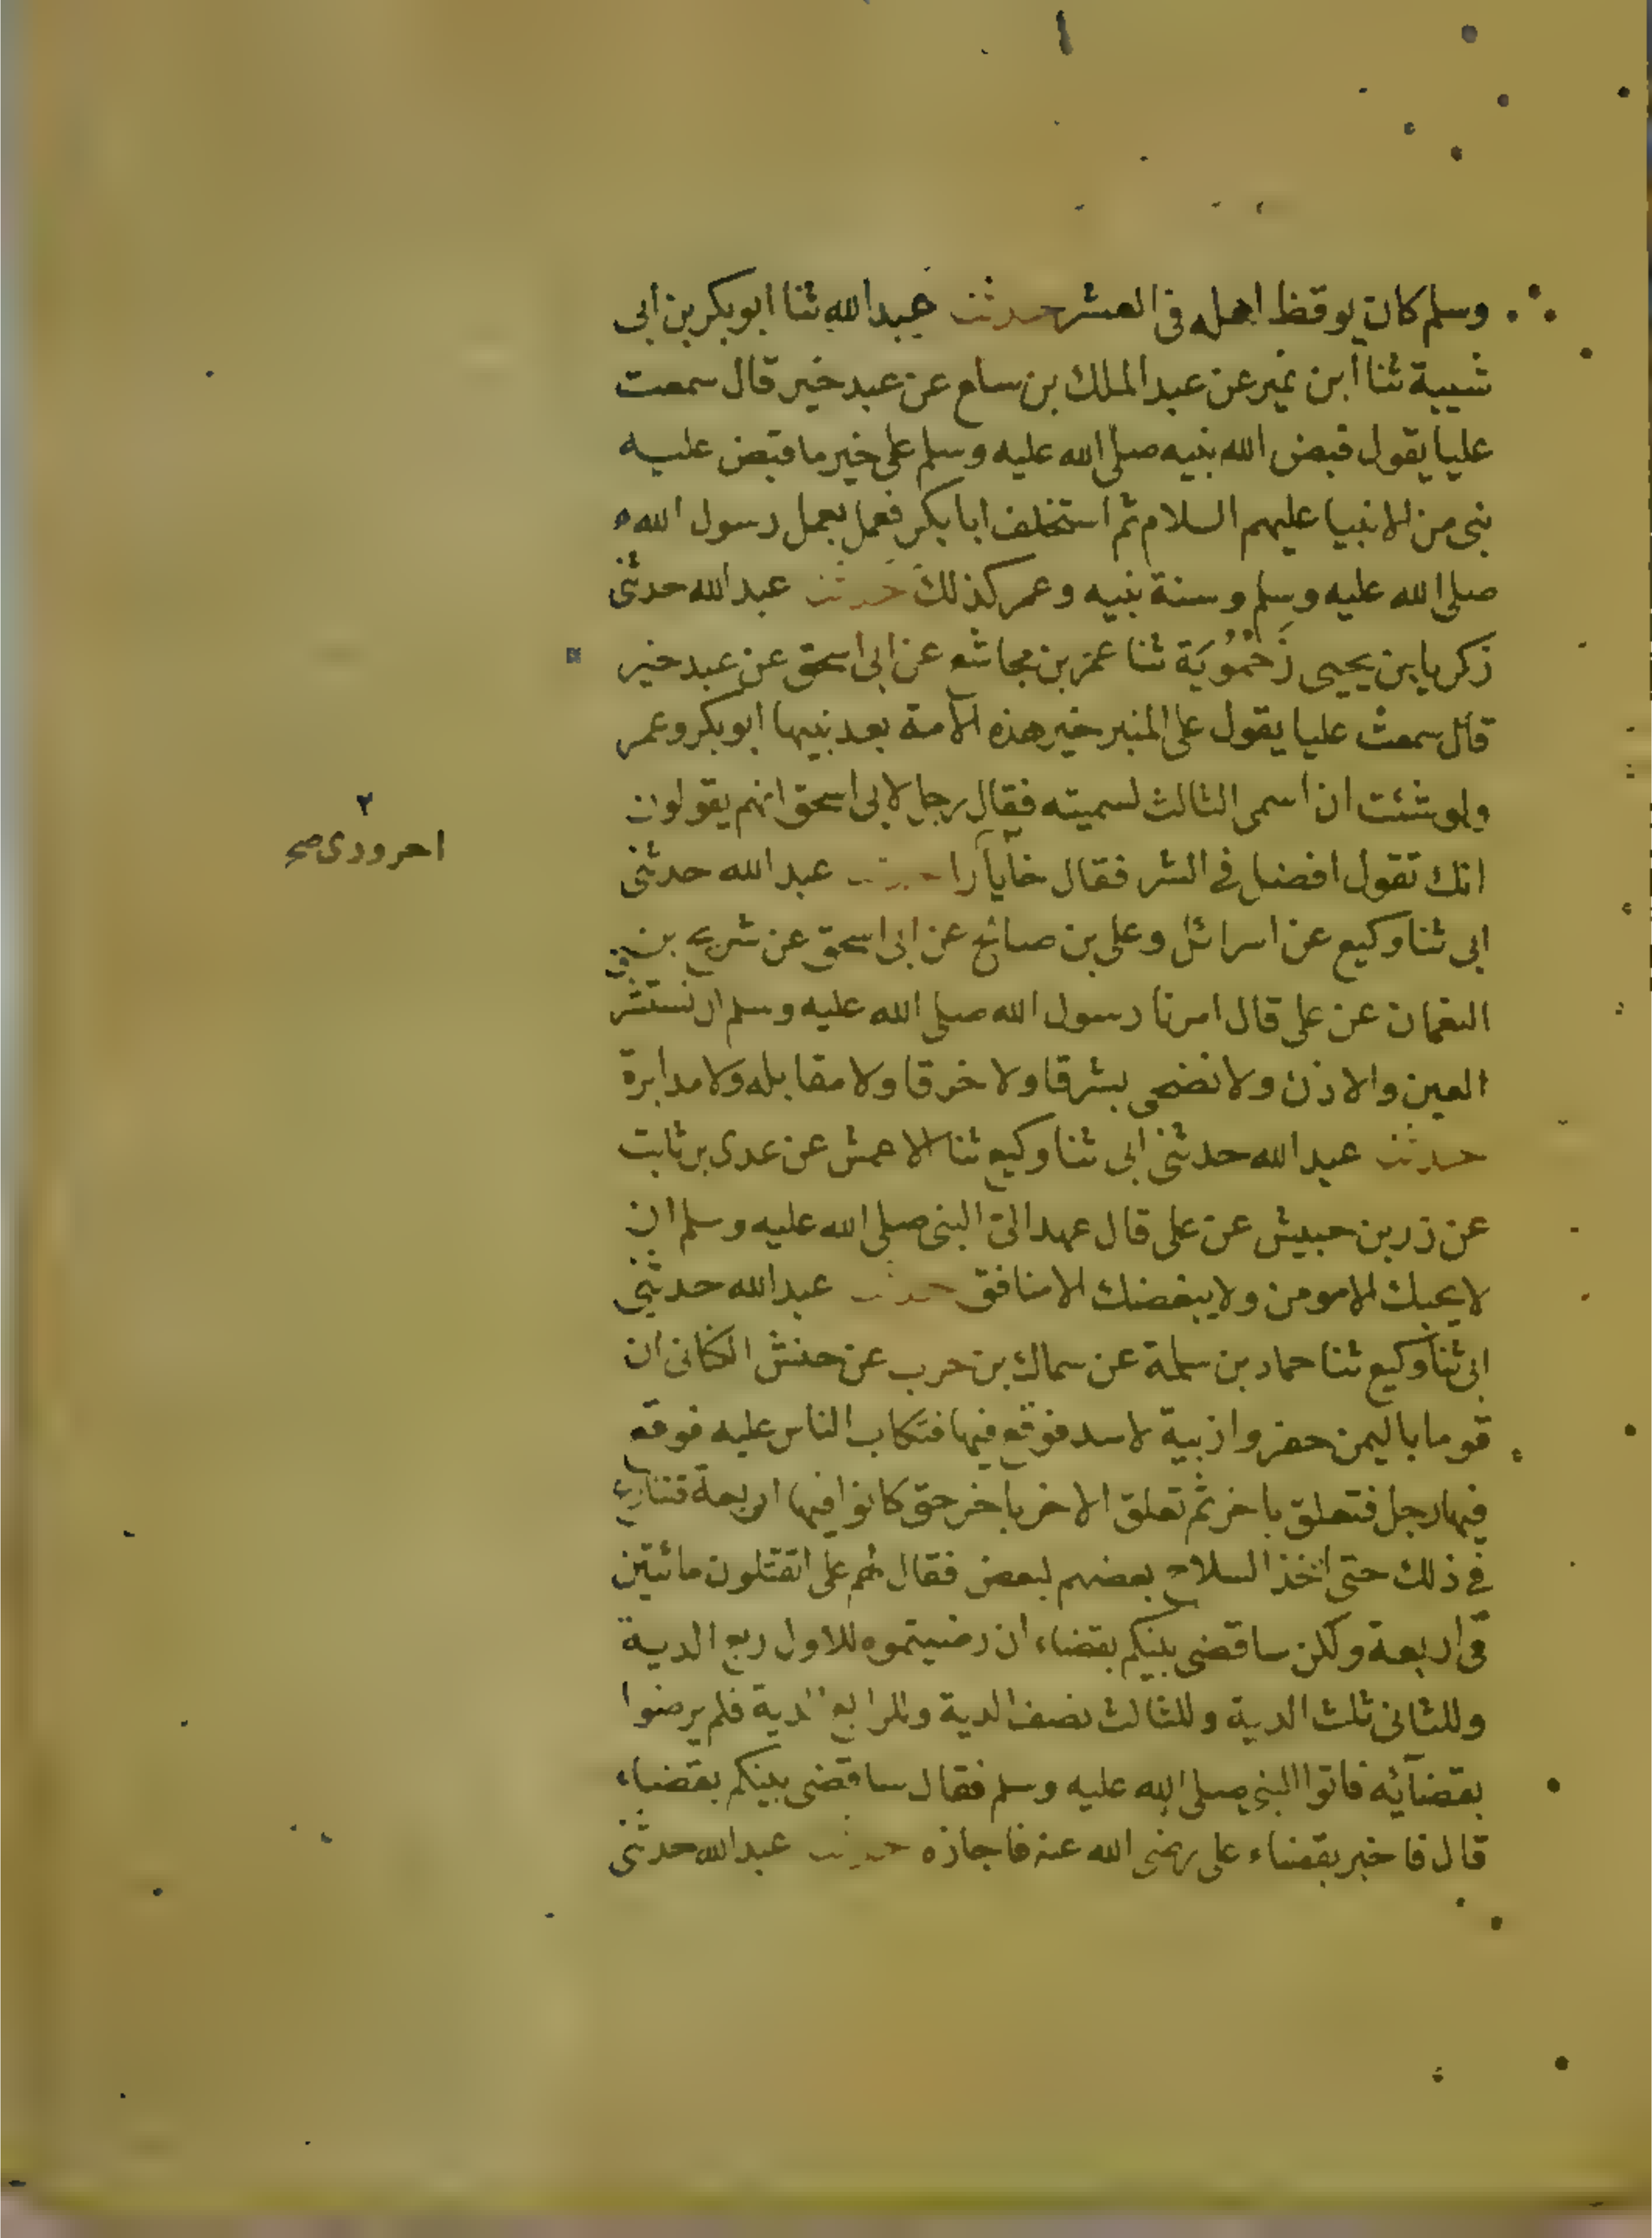 وسلم كان يوقظ اهله فى العشر حدثنا عبدالله ثنا ابوبكر بن ابى
شيبة ثنا ابن نمير عن عبد الملك بن سلع عن عبد خير قال سمعت
عليا يقول قبض الله نبيه صلى الله عليه وسلم على خير ما قبض عليه
نبى من الانبيا عليهم السلام ثم استخلف ابا بكر فعمل بعمل رسول الله
صلى الله عليه وسلم وسنة نبيه وعمر كذلك حدثنا عبد الله حدثنى
زكريا بن يحيى زَحْمُويَة ثنا عمر بن مجاشع عن ابى اسحق عن عبد خير
قال سمعت عليا يقول على المنبر خير هذه الامة بعد نبيها ابو بكر وعمر
ولو شئت ان اسمى الثالث لسميته فقال رجل لابى اسحق انهم يقولون
انك تقول افضل فى الشر فقال حدثنا عبد الله حدثنى
ابى ثنا وكيع عن اسرائل وعلى بن صالح عن ابى اسحق عن شريح بن
النعمان عن على قال امرنا رسول الله صلى الله عليه وسلم ان نستشر
العين والاذن ولا نضحى بشرقا ولا خرقا ولا مقابله ولا مدابرة
حدثنا عبد الله حدثنى ابى ثنا وكيع ثنا الاعمش عن عدى بن ثابت
عن زر بن حبيش عن على قال عهد الى النبى صلى الله عليه وسلم ان
لا يحبك الا مومن ولا يبغضك الا منافق حدثنا عبد الله حدثنى
ابى ثنا وكيع ثنا حماد بن سلمة عن سماك بن حرب عن حنش الكنانى ان
قوما باليمن حفروا زبية لاسد فوقع فيها فتكاب الناس عليه فوقع
فيها رجل فتعلق باخر ثم تعلق الاخر باخر حتى كانوا فيها اربعة فتنازع
فى ذلك حتى اخذ السلاح بعضهم لبعض فقال لهم على اتقتلون مائتين
فى اربعة ولكن ساقضى بينكم بقضاء ان رضيتموه للاول ربع الدية
وللثانى ثلث الدية وللثالث نصف الدية وللرابع الدية فلم يرضوا
بقضائه فاتوا النبى صلى الله عليه وسلم فقال ساقضى بينكم بقضاء
قال فاخبر بقضاء على رضى الله عنه فاجازه حدثنا عبد الله حدثنى